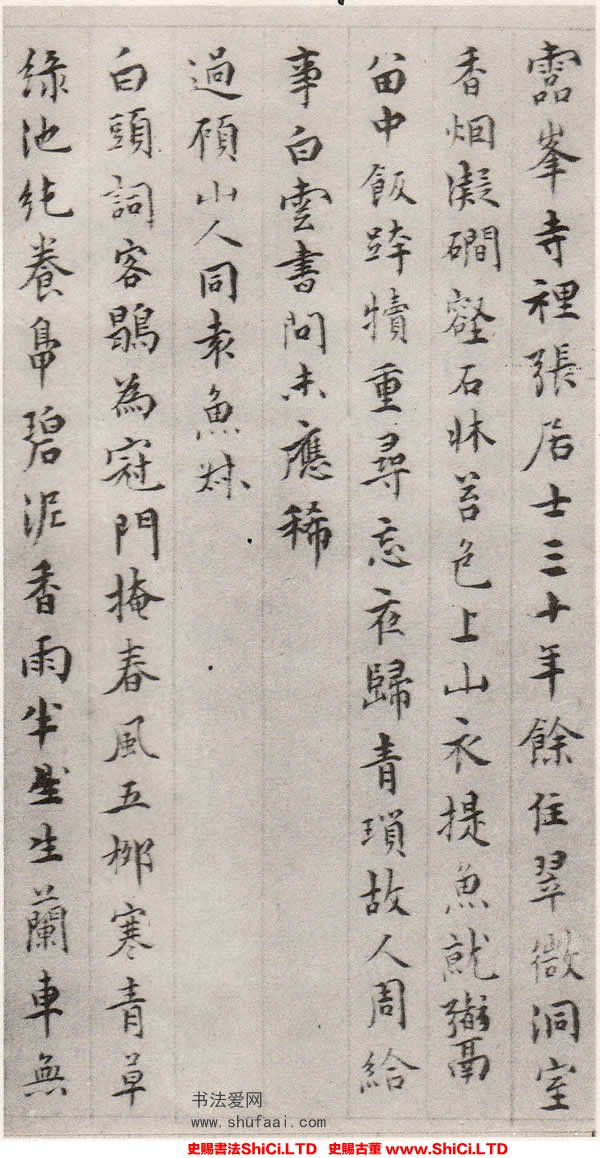 靈峯寺裡張居士三十年餘住翠微洞室
香烟凝磵壑石牀苔色上山衣提魚就
留中飯跨犢重尋忘夜歸青瑣故人周給
事白雲書問未應稀
過碩山人同袁魚
白頭詞客鶡為冠門掩春風五柳寒青草
綠池純養鼻碧泥香雨半生蘭車無
书法爱网
www.shufaai.com
史賜書法ShiCi.LTD 史賜古董 www.ShiCi.LTD